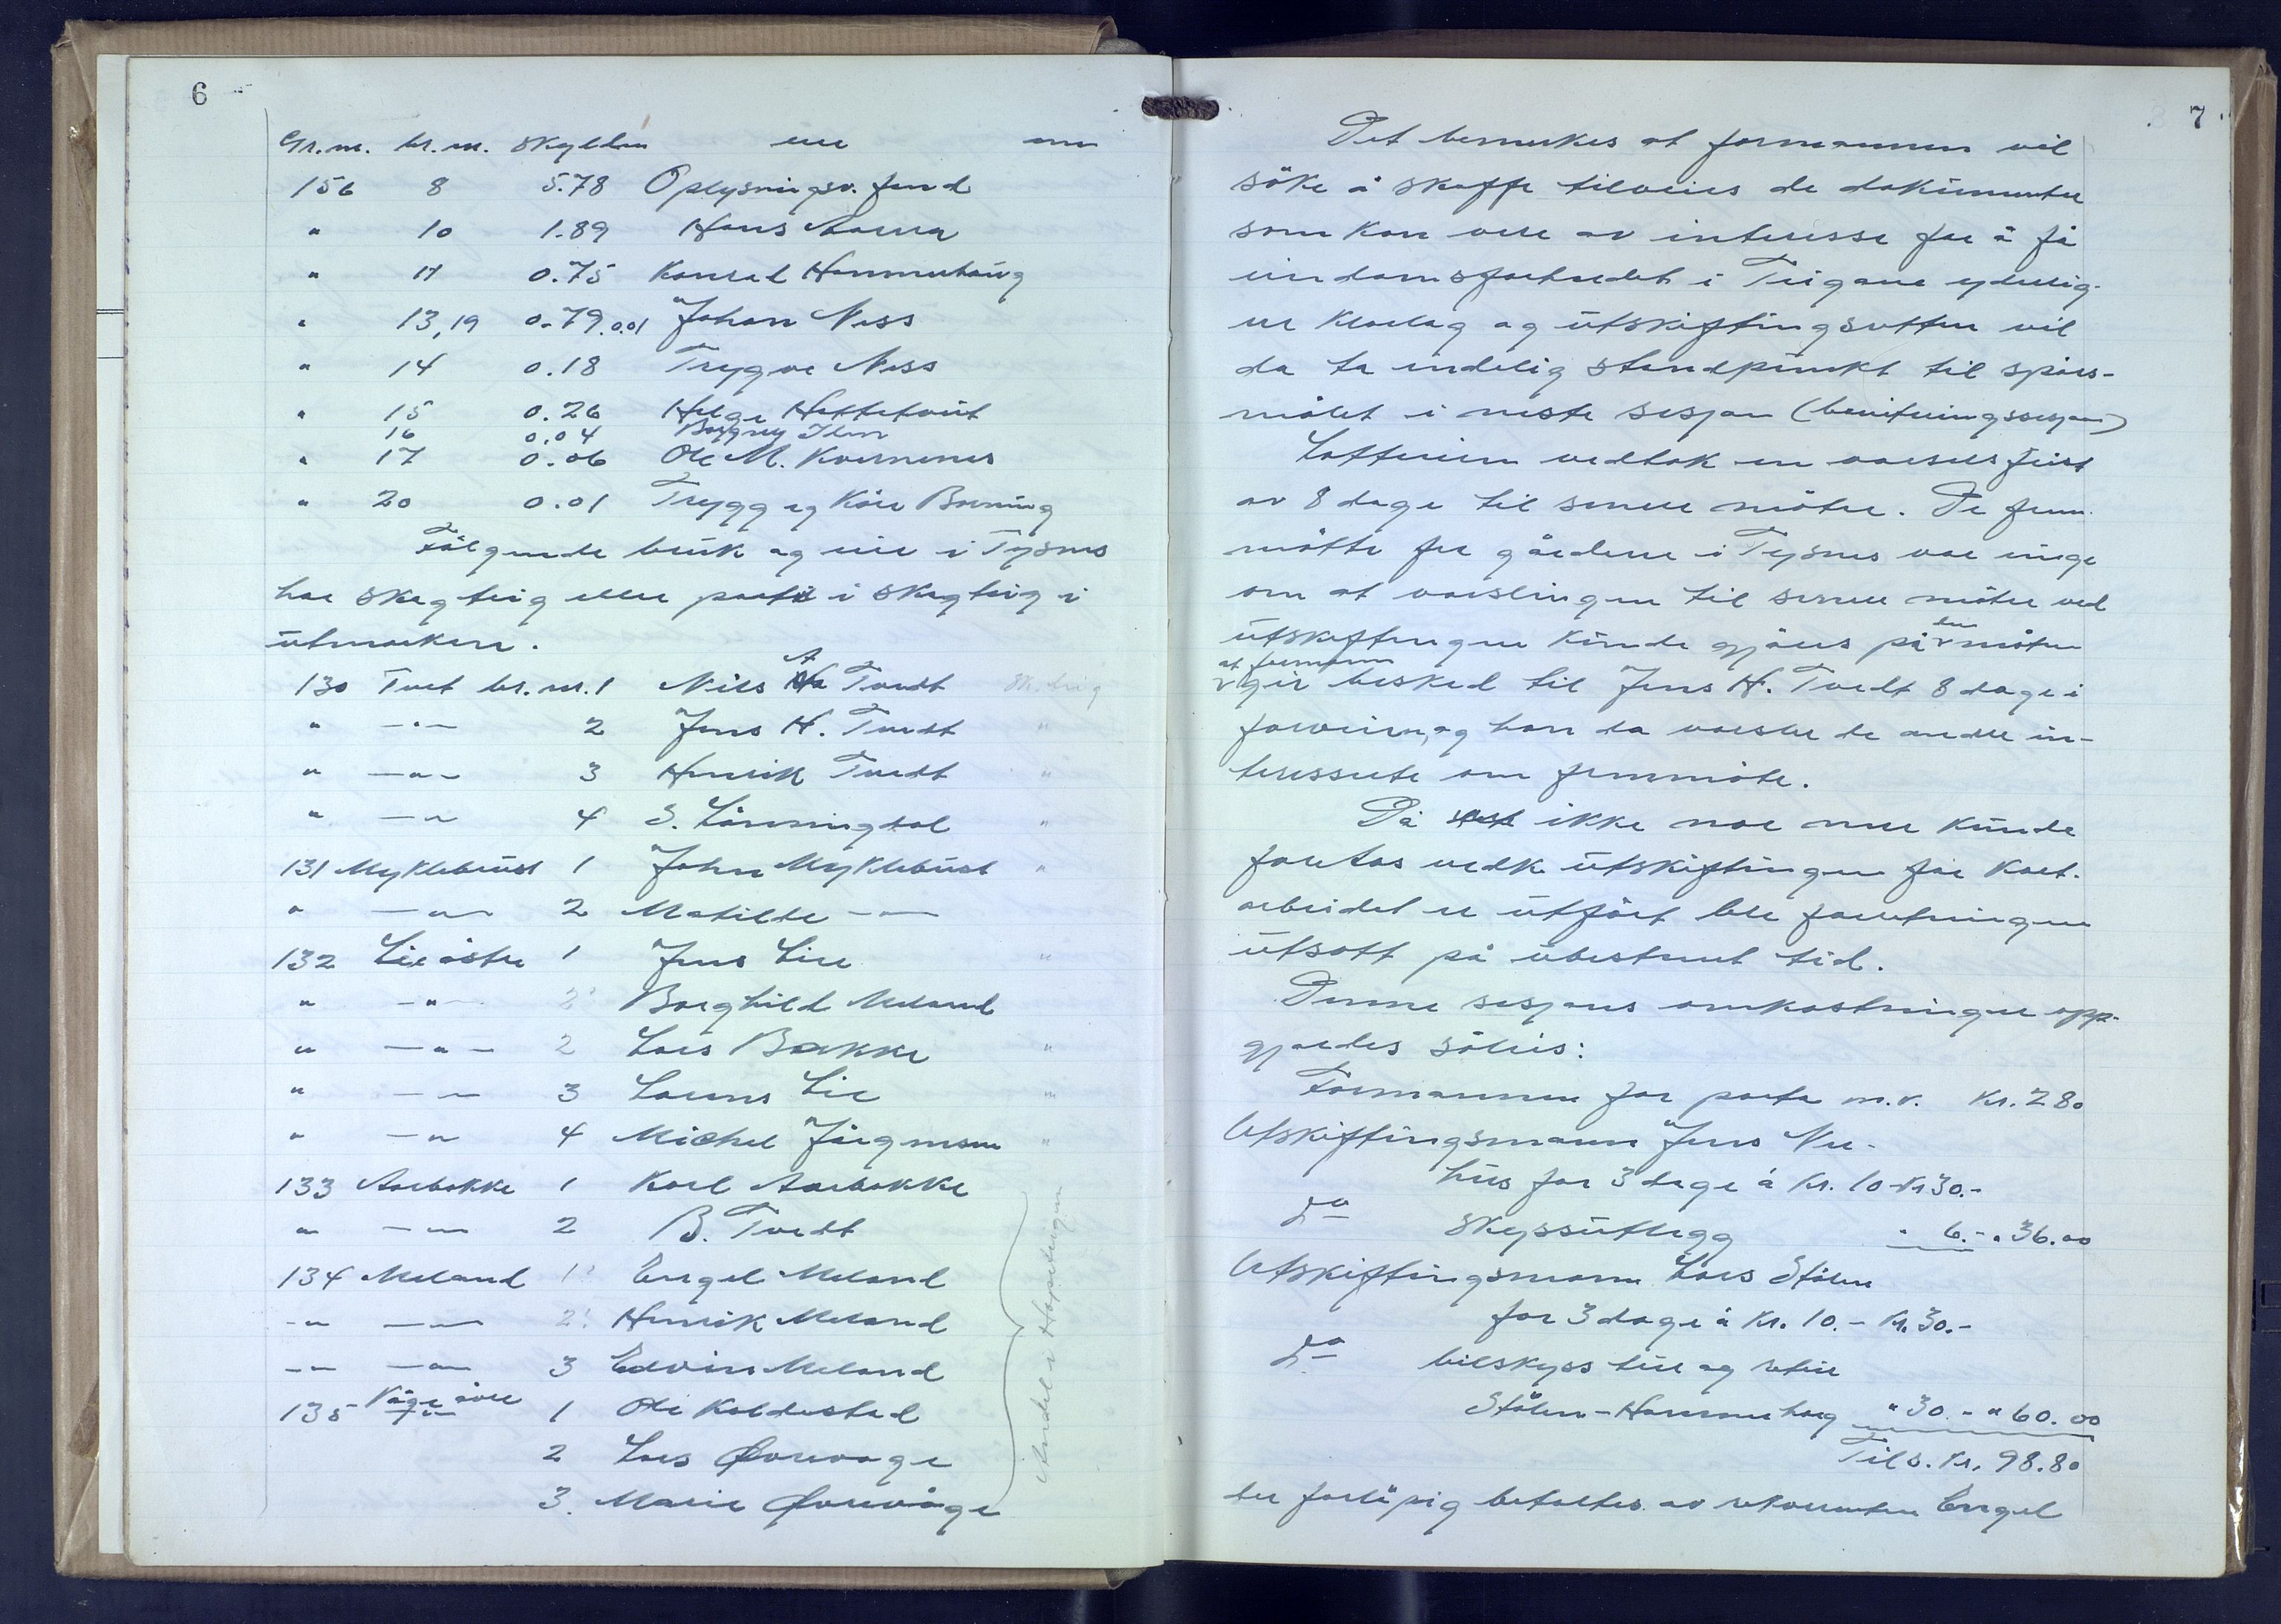 6
Gr.nr. br.nr. Skylddm eier mm
156 8 5.78 Oplysningsv. fond
" 10 1.89 Hans
" 11 0.75 Konrad Hammerhaug
" 13,19 0.79.0.01 Johan Ness
" 14 0.18 Trygve Ness
" 15 0.26 Helge Hettetvüt
16 0.04 Borgny
" 17 0.06 Ole M. Kvernenes
" 20 0.01 Trygg og Kåre Bruning
Fölgende brük og eier i Tysnes
har skogteig eller part i skogteig i
ütmarken.
130 Tvet br.nr. 1 Nils A Tvedt Sk.teig
" —"— 2 Jens H. Tvedt "
" —"— 3 Henrik Tvedt "
" —"— 4 S. Lönningdal "
131 Myklebüst 1 John Myklebüst "
" —"— 2 Matilde —"—
132 Lie östre 1 Jens Lie "
" —"— 2 Borghild Meland
" —"— 2 Lars Bakke "
" —"— 3 Laurus Lie "
" —"— 4 Michel Jörgensen "
133 Aarbakke 1 Karl Aarbakke
" —"— 2 B. Tvedt
134 Meland 1 Engel Meland
—"— —"— 2 Henrik Meland
—"— —"— 3 Edvin Meland
135 Våge övre 1 Ole Koldestad
2 Lars Øvrevage
3. Marie Øvrevåge
Andel i
7
Det bemerkes at formannen vil
söke å skaffe tilveies de dokümenter
som kan vere av interesse for å få
eiendomsforholdet i Teigane yderlig-
ere klarlag og ütskiftingsretten vil
da ta endelig standpünkt til spörs-
målet i neste sesjon (beviteringssesjon)
Lotteieren vedtok en varselsfrist
av 8 dage til senere möter. De frem-
mötte for gårdene i Tysnes var enige
om at varslingen til senere möter ved
ütskiftingen künde gjöres på den måten
at formann gir besked til Jens H. Tvedt 8 dage i
forveien, og han da varsler de andre in-
teresserte om fremmöte.
Da ikke noe mer künde
foretas vedk ütskiftingen för kart-
arbeidet er ütfört ble forretningen
ütsatt på übestemt tid.
Denne sesjons omkostninger opp-
gjordes således:
Formannen for porto m.v. Kr. 2.80
Utskiftingsmann Jens Ne-
hüs for 3 dage á Kr. 10 - Kr 30.-
do skyssütlegg " 6.- " 36.00
Utskiftingsmann Lars Stölen
for 3 dage á Kr. 10.- Kr. 30.-
do bilskyss tür og retür
Stölen - Hammerhaug " 30.- " 60.00
Tils. Kr. 98.80
der forlöpig betaltes av rekvirenten Engel